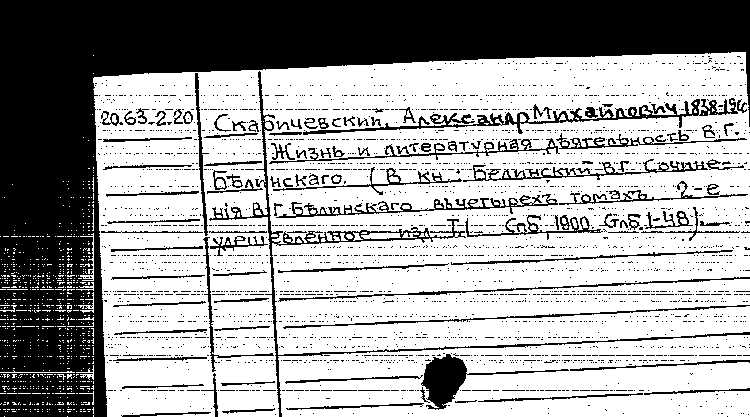 20.63.2.20 Скабичевский, Александр Михайлович, 1838-19
Жизнь и литературная дѣятельность В.Г.
Бѣлинскаго. (В кн.: Белинский, В.Г. Сочине-
нія В.Г. Бѣлинскаго въ четырехъ томахъ. 2-е
удешевленное изд. Т.1. Спб., 1900. Слб. 1-48).